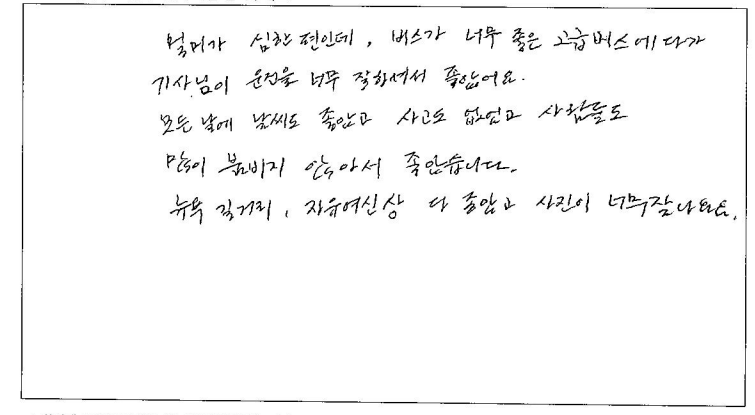 멀미가 심한 편인데, 버스가 너무 좋은 고급버스에다가
기사님이 운전을 너무 잘하셔서 좋았어요.
모든 날에 날씨도 좋았고 사고도 없었고 사람들도
많이 붐비지 않아서 좋았습니다.
뉴욕 길거리, 자유여신상 다 좋았고 사진이 너무 잘 나와요.